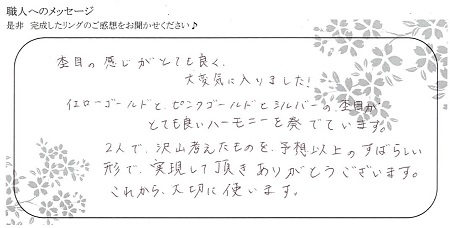 職人へのメッセージ
是非 完成したリングのご感想をお聞かせください♪
杢目の感じがとても良く、
大変気に入りました!
イエローゴールドと、ピンクゴールドとシルバーの、杢目が
とても良いハーモニーを奏でています。
2人で、沢山考えたものを、予想以上のすばらしい
形で、実現して頂きありがとうございます。
これから、大切に使います。